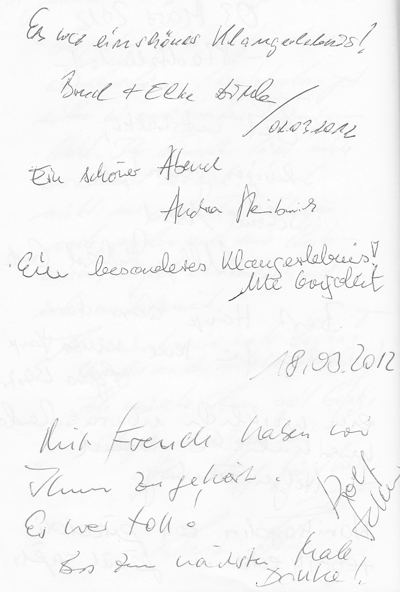 Es war ein schönes Klangerlebnis!
Bernd + Elke
01.03.2012
Ein schöner Abend
Andrea
Ein besonderes Klangerlebnis!
Ute
18.03.2012
Mit Freude haben wir
Ihnen zugehört.
Es war toll!
Bis zum nächsten Male
Danke!
Rolf